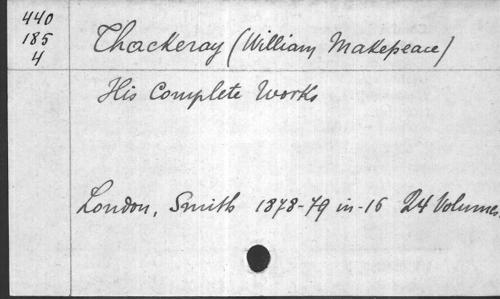 440
185
4
Thackeray (William Makepeace)
His Complete Works
London, Smith 1878-79 in-16 24 Volumes.